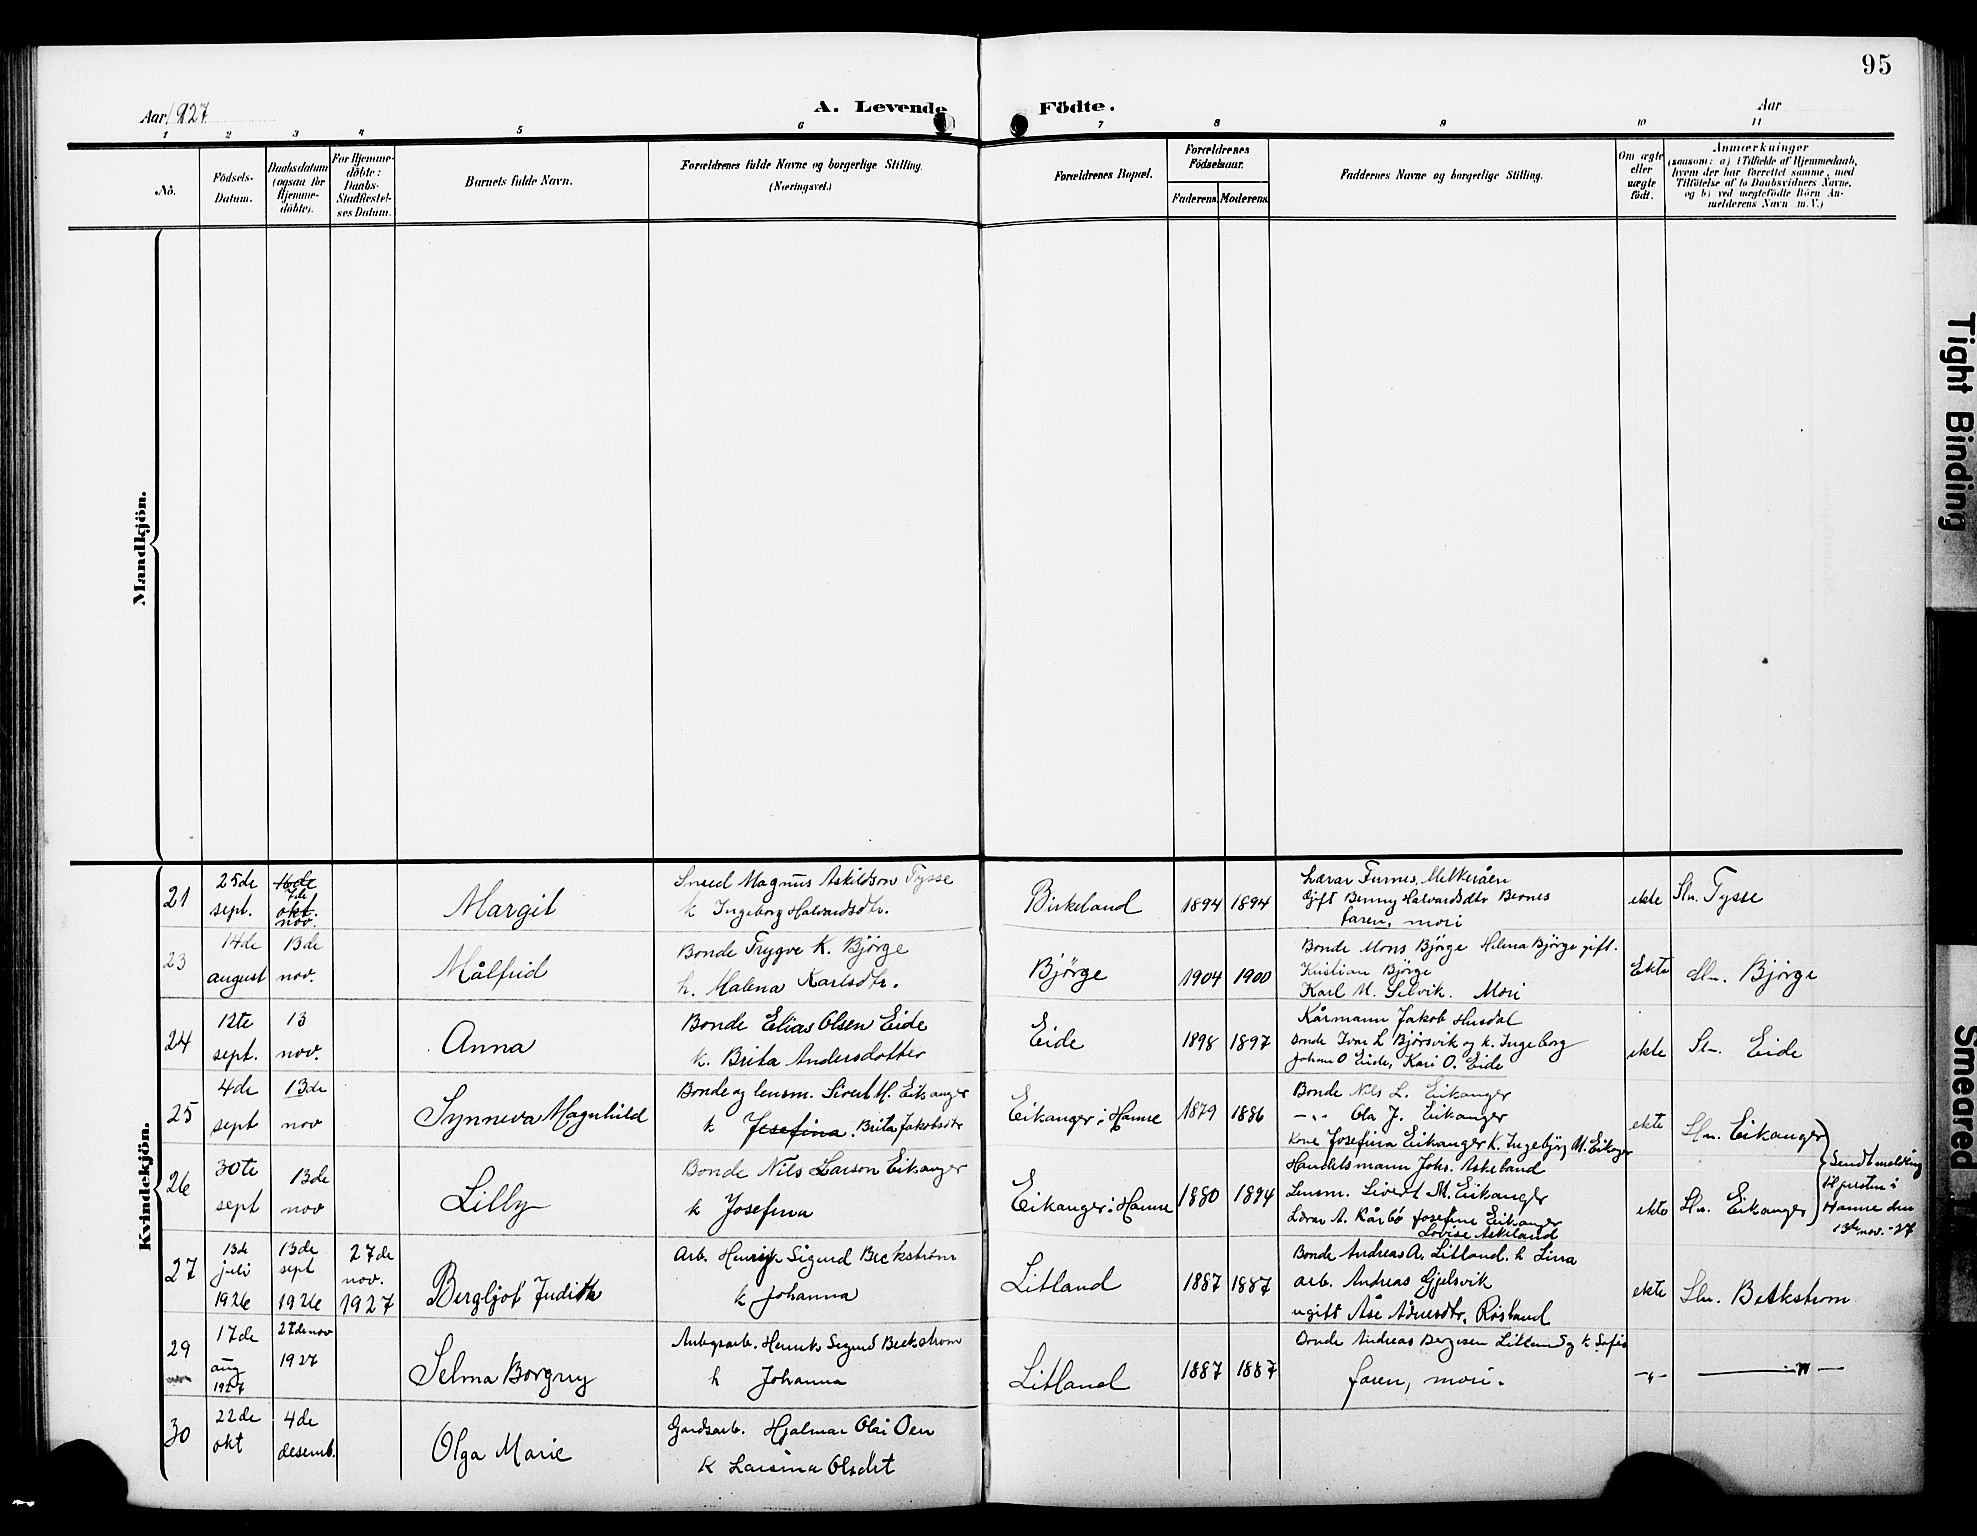 95
Aar 1927
A. Levende Födte.
Aar
1 2 3 4 5 6 7 8 9 10 11
No.
Födsels-
Datum.
Daabsdatum
(ogsaa for
Hjemme-
döbte).
For Hjemme-
döbte:
Daabs-
Stadfæstel-
ses Datum.
Barnets fulde Navn.
Forældrenes fulde Navne og borgerlige Stilling.
(Næringsvei.)
Forældrenes Bopæl.
Forældrenes
Födselsaar.
Faderens Moderens
Faddernes Navne og borgerlige Stilling.
Om ægte
eller
uægte
födt.
Anmærkninger
(saasom: a) i Tilfælde af Hjemmedaab,
hvem der har forrettet samme, med
Tilföielse af to Daabsvidners Navne,
og b) ved uægtefödte Börn An-
melderens Navn m. V.)
Mandkjön.
Kvindekjön.
21
25de
sept.
16de
7de
okt.
nov.
Margit
Sned Magnus Askildson Tysse
k Ingeborg Halvardsdtr.
Birkeland
1894 1894
Lærar Furnes, Melkeråen
Gift Benny Halvardsdtr Bernes
faren, mori
ekte
Sln. Tysse
23
14de
august
13de
nov.
Målfrid
Bonde Trygve K. Bjørge
h. Malena Karlsdtr.
Bjørge
1904 1900
Bonde Mons Bjørge Helena Bjørge gift.
Kristian Bjørge
Karl M. Selvik. Mori
Ekte
Sln. Bjørge
24
12te
sept.
13
nov.
Anna
Bonde Elias Olsen Eide
k. Brita Andersdotter
Eide
1898 1897
Kårmann Jakob Husdal
Bonde Ivar L Bjørsvik og k. Ingeborg
Johan O Eide, Kari O. Eide
ekte
Sln. Eide
25
4de
sept
13de
nov
Synneva Magnhild
Bonde og lensm. Sivert M. Eikanger
k Josefina. Brita Jakobsdtr
Eikanger i Hamre
1879 1886
Bonde Nils L. Eikanger
-"- Ola J. Eikanger
Kone Josefina Eikanger K. Ingebjørg M. Eikanger
ekte
Sln. Eikanger
26
30te
sept
13de
nov
Lilly
Bonde Nils Larson Eikanger
k Josefina
Eikanger i Hamre
1880 1894
Handelsmann Johs. Askeland
Lensm. Sivert M. Eikanger
Lærar A. Kårbø Josefine Eikanger
Lovise Askeland
ekte
Sln. Eikanger
Sendt melding
til presten i
Hamre den
13de nov. -27
27
13de
juli
1926
13de
sept
1926
27de
nov.
1927
Bergljot Judith
Arb. Henrik Sigurd Beckstrøm
k Johanna
Litland
1887 1887
Bonde Andreas A. Litland. h Lina
arb. Andreas Gjelsvik
ugift Åse Ådnesdtr. Risland
ekte
Sln. Beckstrøm
29
17de
aug
1927
27de nov
1927
Selma Borgny
Anlegsarb. Henrik Sigurd Beckstrøm
h Johanna
Litland
1887 1887
Bonde Andreas Bergesen Litland og k Sofie
faren, mori.
-"-
-"-
30
22de
okt
4de
desemb.
Olga Marie
Gardsarb. Hjalmar Olai Oen
K Larsina Olsdtr
Tight Binding
Smeared